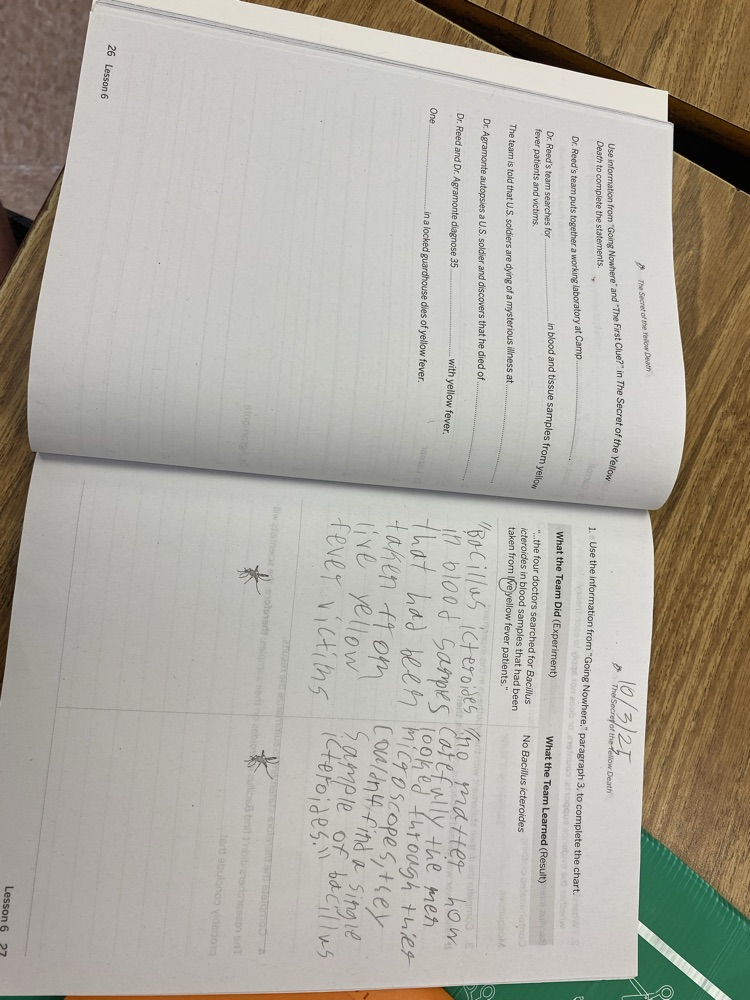 The Secret of the Yellow Death
Use information from "Going Nowhere" and "The First Clue?" in The Secret of the Yellow
Death to complete the statements.
Dr. Reed's team puts together a working laboratory at Camp ______.
Dr. Reed's team searches for ______ in blood and tissue samples from yellow
fever patients and victims.
The team is told that U.S. soldiers are dying of a mysterious illness at ______.
Dr. Agramonte autopsies a U.S. soldier and discovers that he died of ______.
Dr. Reed and Dr. Agramonte diagnose 35 ______ with yellow fever.
One ______ in a locked guardhouse dies of yellow fever.
26 Lesson 6
10/3/25
The Secret of the Yellow Death
1. Use the information from "Going Nowhere," paragraph 3, to complete the chart.
What the Team Did (Experiment)
"...the four doctors searched for Bacillus
icteroides in blood samples that had been
taken from live yellow fever patients."
"Bacillus icteroides
in blood samples
that had been
taken from
live yellow
fever victims
What the Team Learned (Result)
No Bacillus icteroides
"no matter how
carefully the men
looked through thier
microscopes, they
couldn4 find a single
sample of bacillus
icteroides."
Lesson 6 27